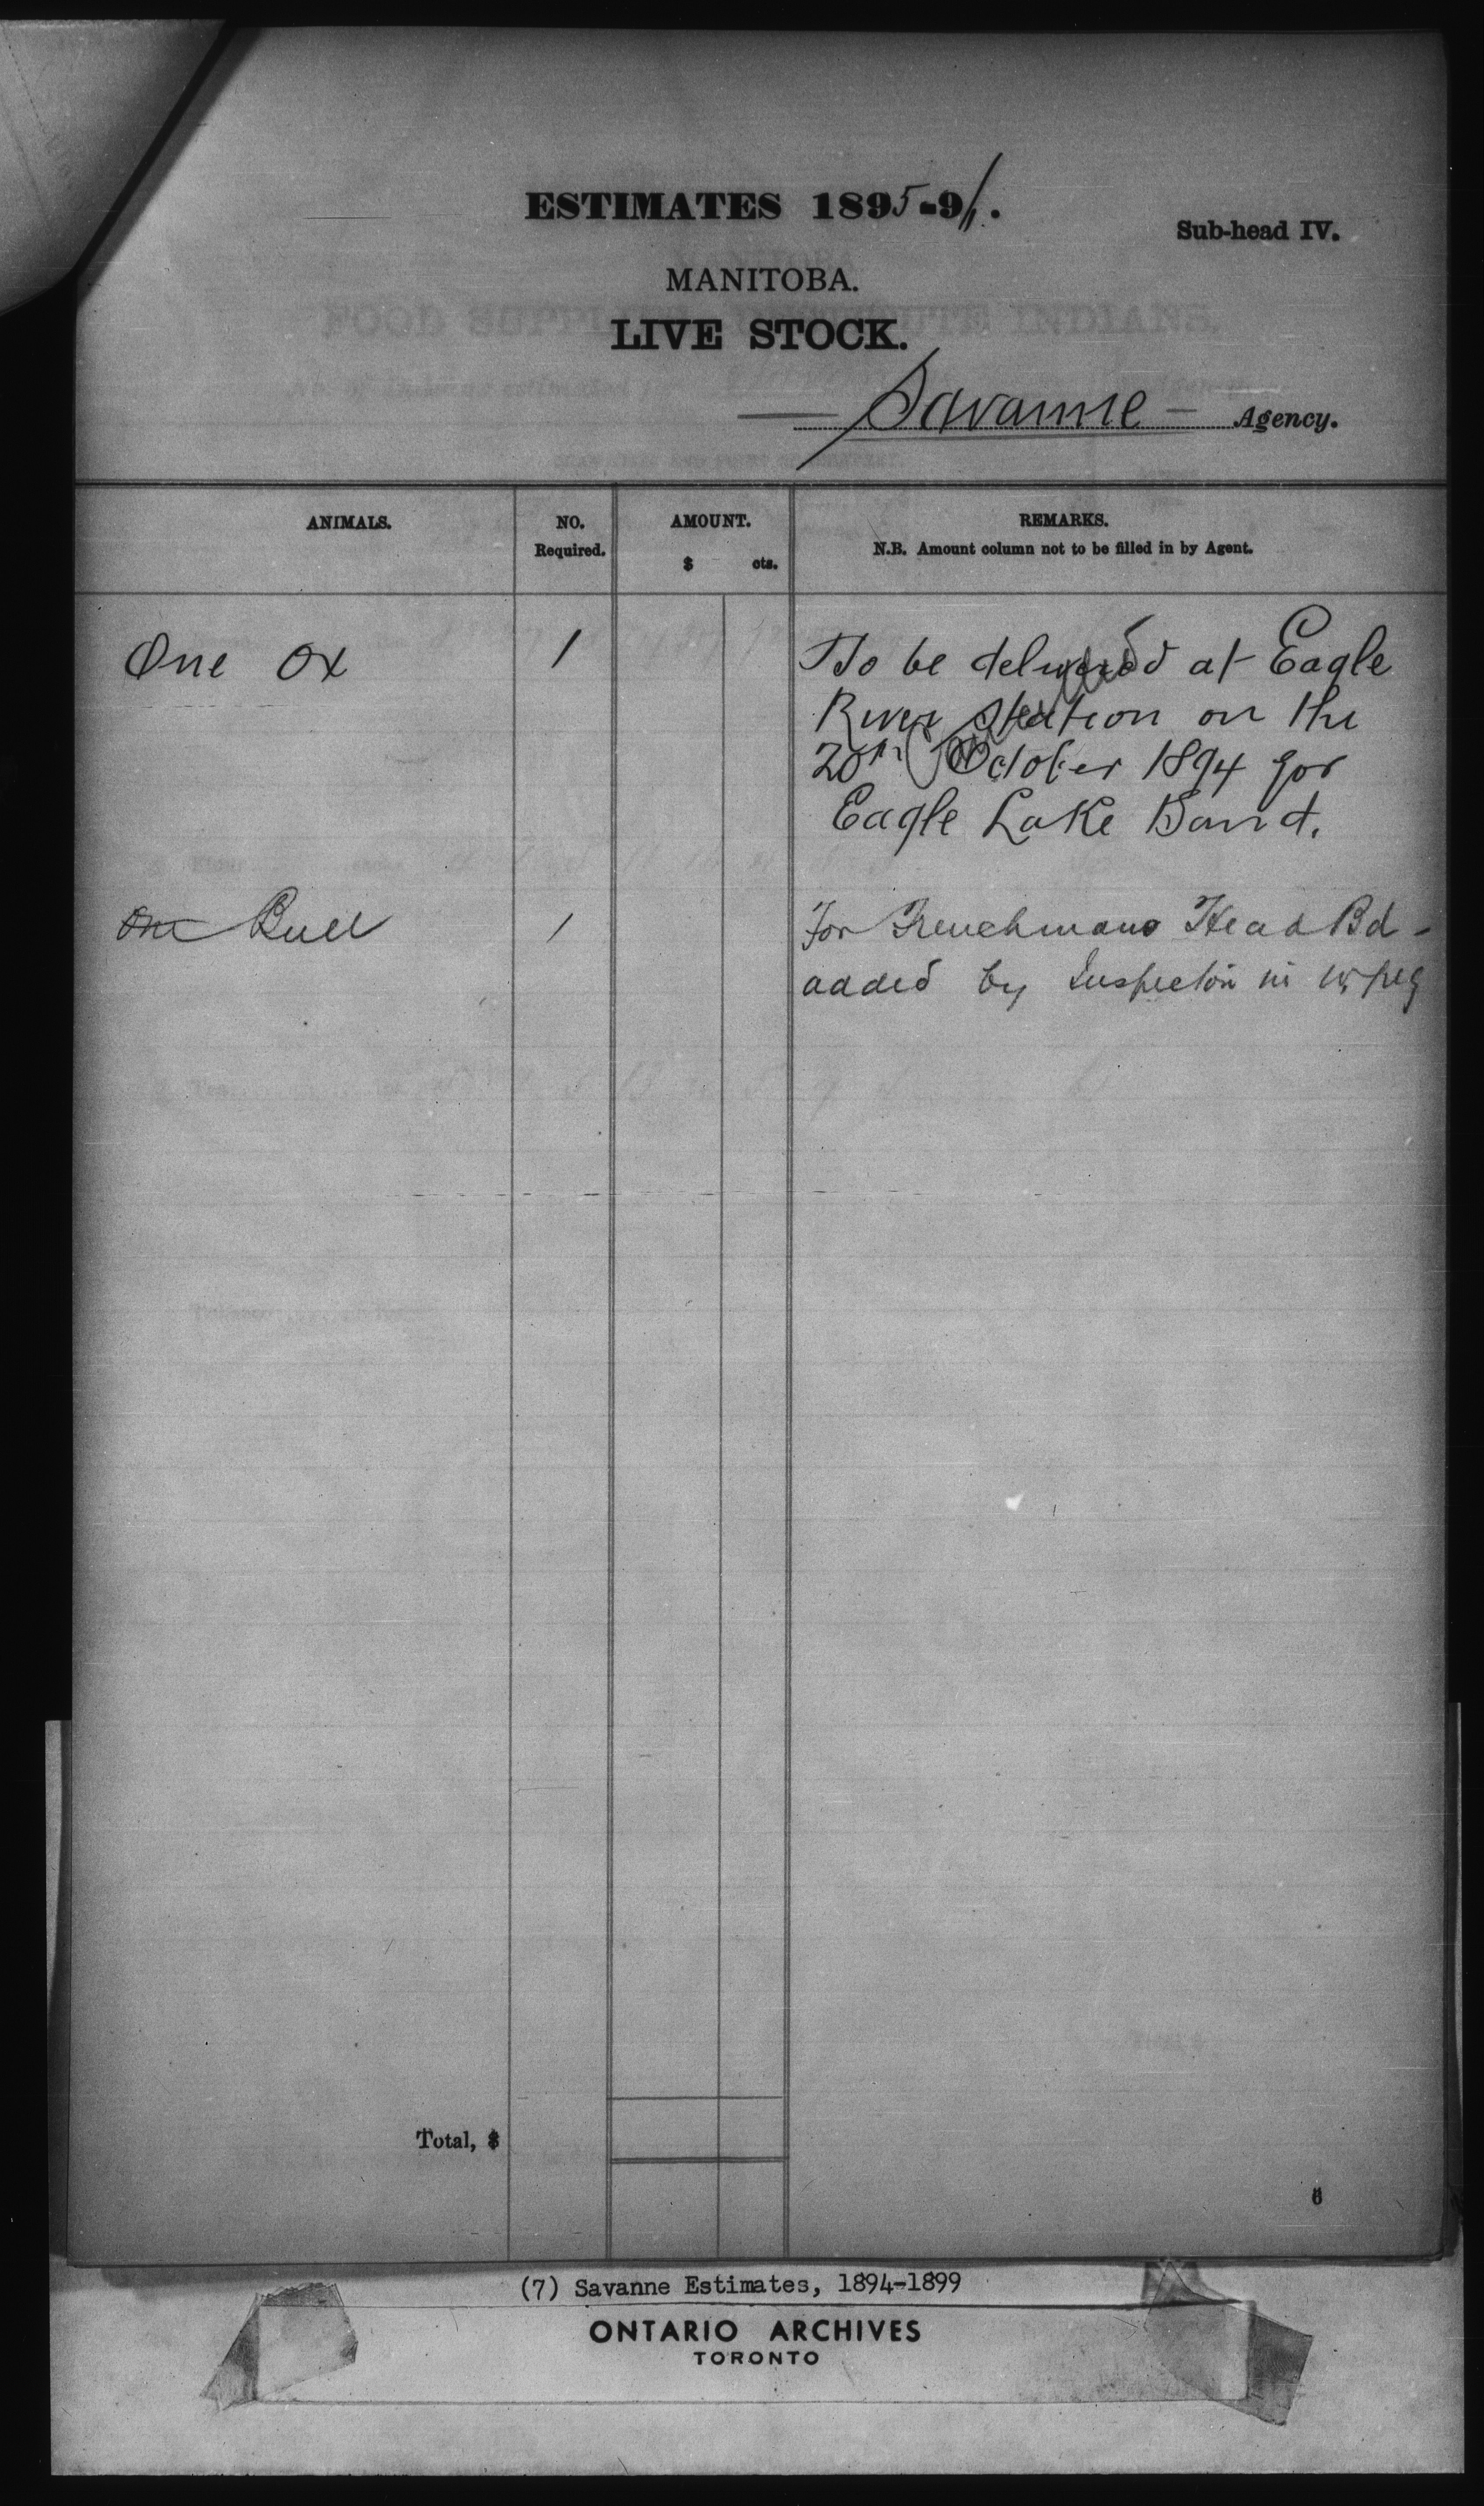 ESTIMATES 1895-96.
Sub-head IV.
MANITOBA.
LIVE STOCK.
Savanne Agency.
ANIMALS. NO. Required. AMOUNT. $ cts. REMARKS. N.B. Amount column not to be filled in by Agent.
One Ox 1 To be delivered at Eagle
River Station on the
20th October 1894 for
Eagle Lake Band.
One Bull 1 For Frenchmans Head Bd -
added by Inspector in Wpeg
Total, $
6
(7) Savanne Estimates, 1894-1899
ONTARIO ARCHIVES
TORONTO